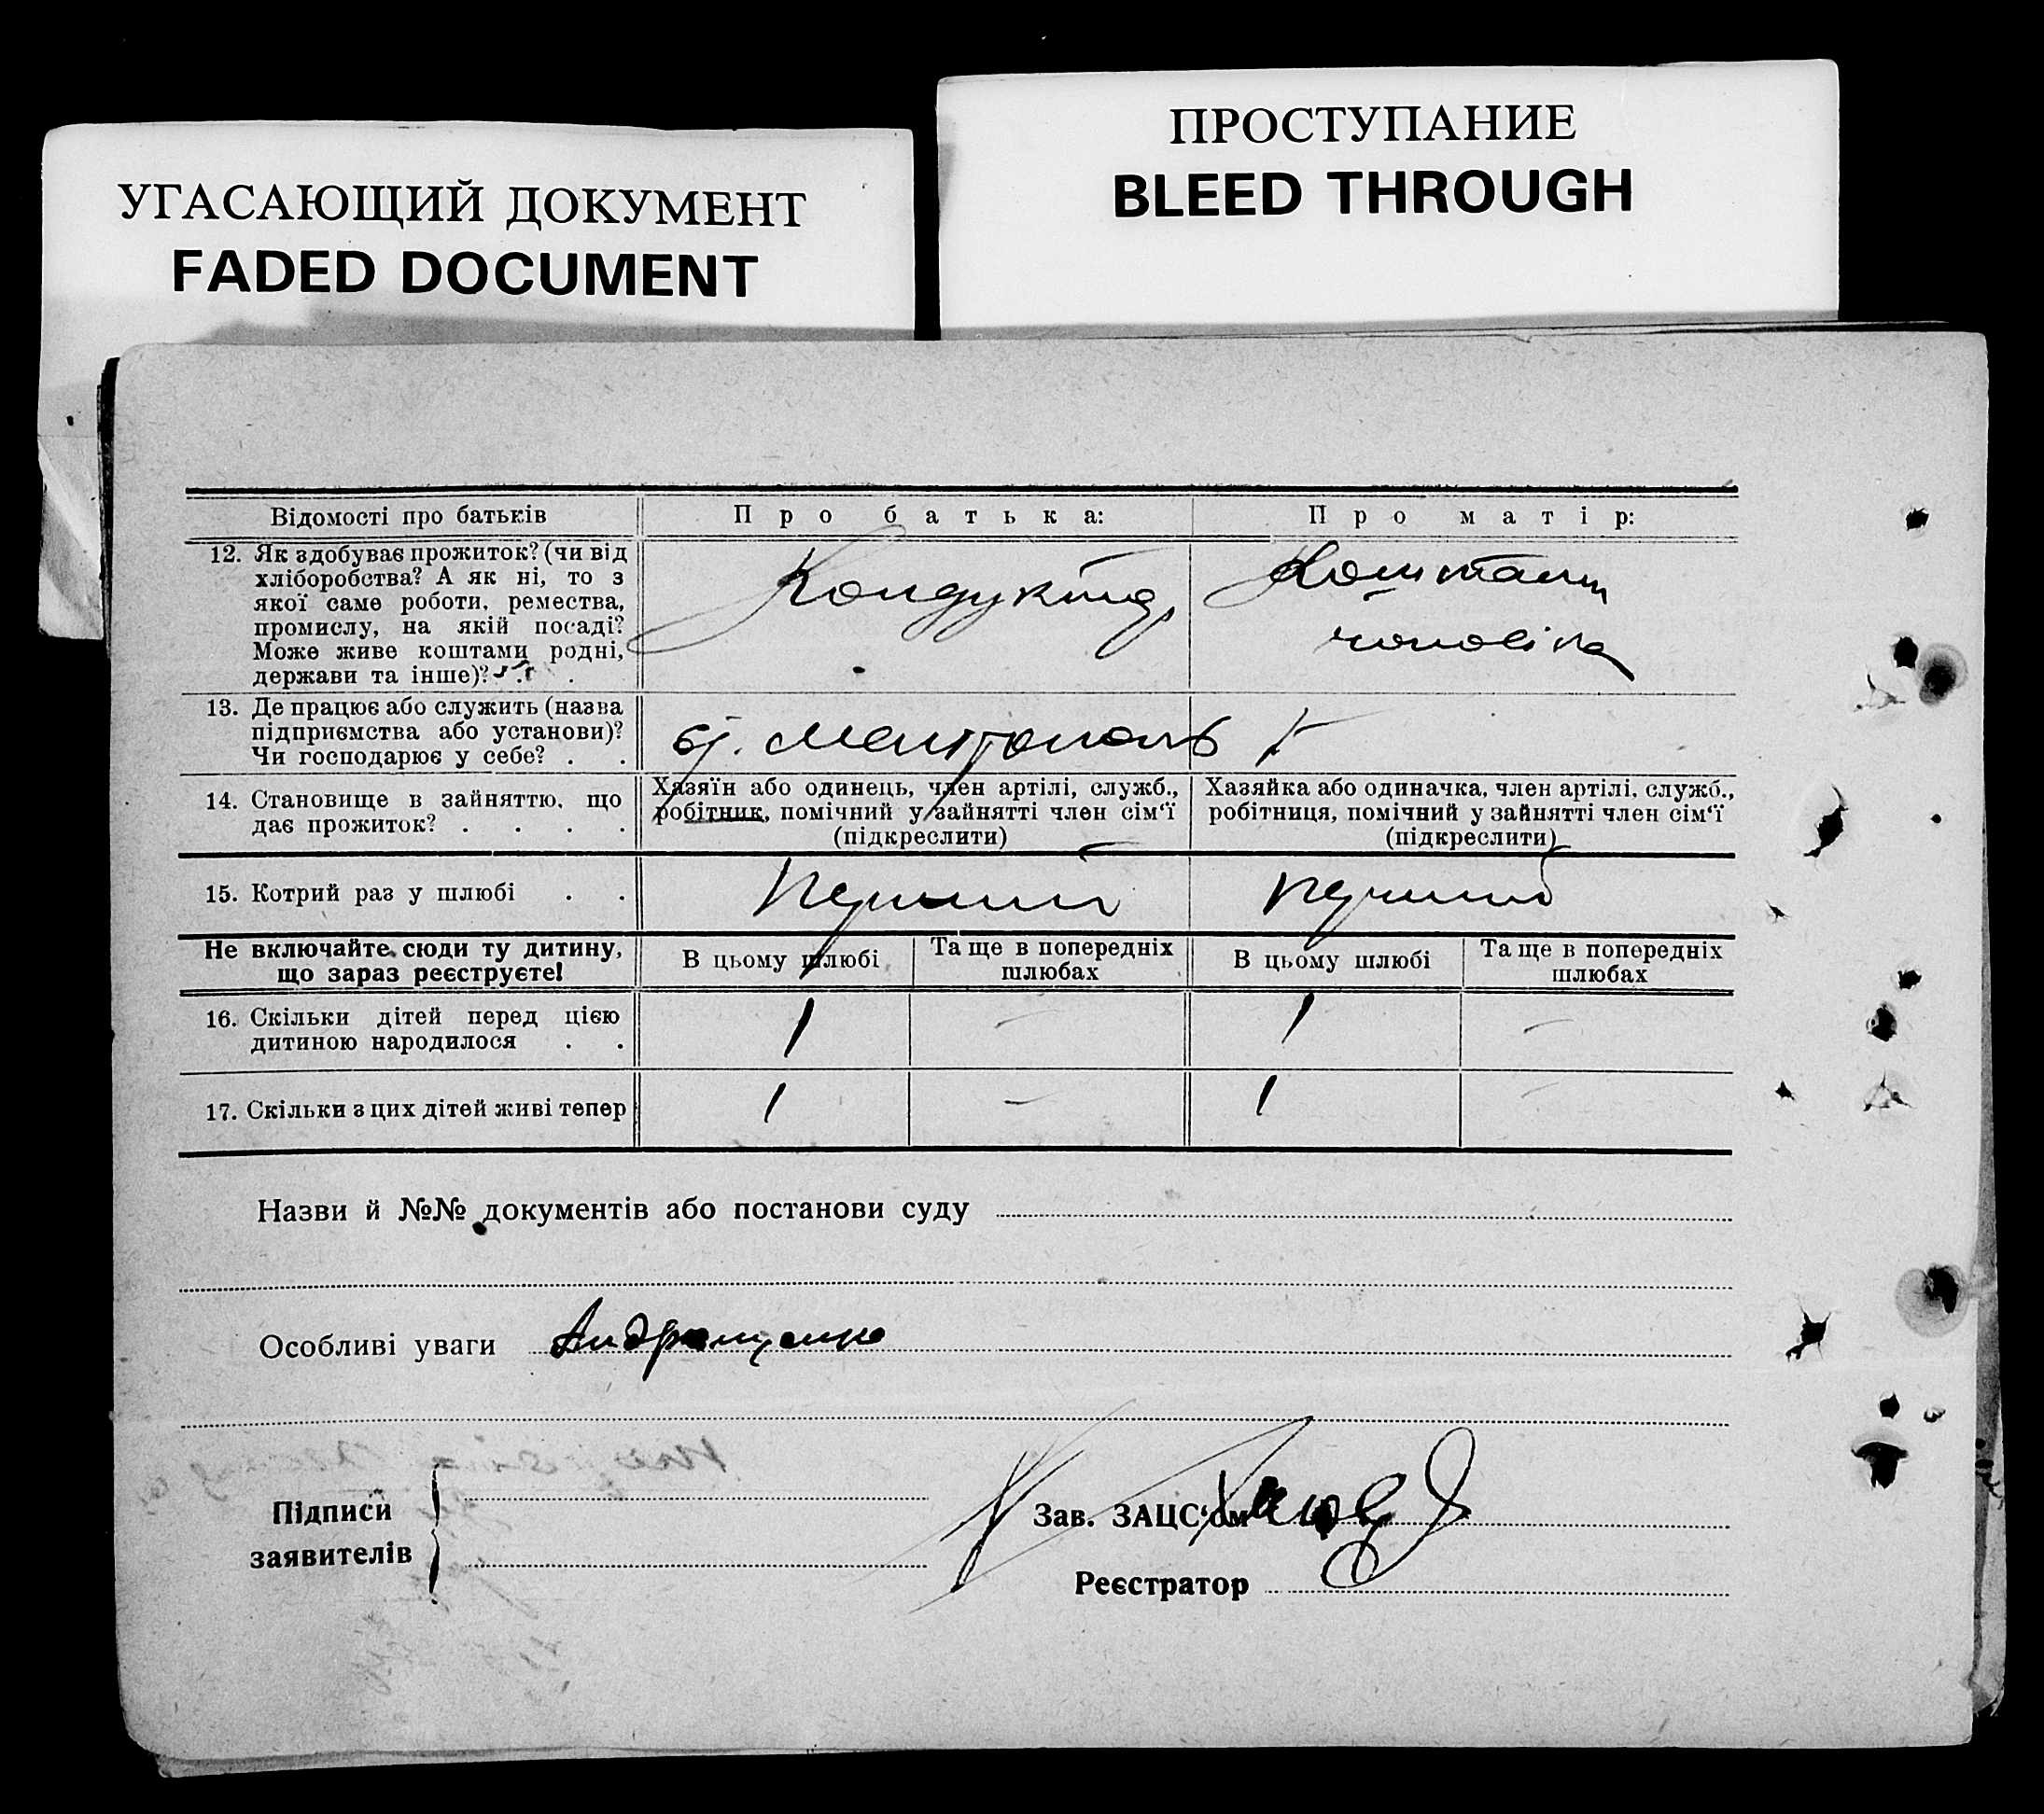 УГАСАЮЩИЙ ДОКУМЕНТ
FADED DOCUMENT
ПРОСТУПАНИЕ
BLEED THROUGH
Відомості про батьків
Про батька:
Про матір:
12. Як здобуває прожиток? (чи від
хліборобства? А як ні, то з
якої саме роботи, ремества,
промислу, на якій посаді?
Може живе коштами родні,
держави та інше)? . .
Кондуктор
Коштами
чоловіка
13. Де працює або служить (назва
підприємства або установи)?
Чи господарює у себе? . .
ст. Мелітополь
14. Становище в зайняттю, що
дає прожиток? . . . .
Хазяїн або одинець, член артілі, служб.,
робітник, помічний у зайнятті член сім‘ї
(підкреслити)
Хазяйка або одиначка, член артілі, служб.,
робітниця, помічний у зайнятті член сім‘ї
(підкреслити)
15. Котрий раз у шлюбі . .
Перший
Перший
Не включайте сюди ту дитину,
що зараз реєструєте!
В цьому шлюбі
Та ще в попередніх
шлюбах
В цьому шлюбі
Та ще в попередніх
шлюбах
16. Скільки дітей перед цією
дитиною народилося . .
1 – 1 –
17. Скільки з цих дітей живі тепер
1 – 1 –
Назви й №№ документів або постанови суду
Особливі уваги
Підписи
заявителів
Зав. ЗАЦС‘ом
Реєстратор